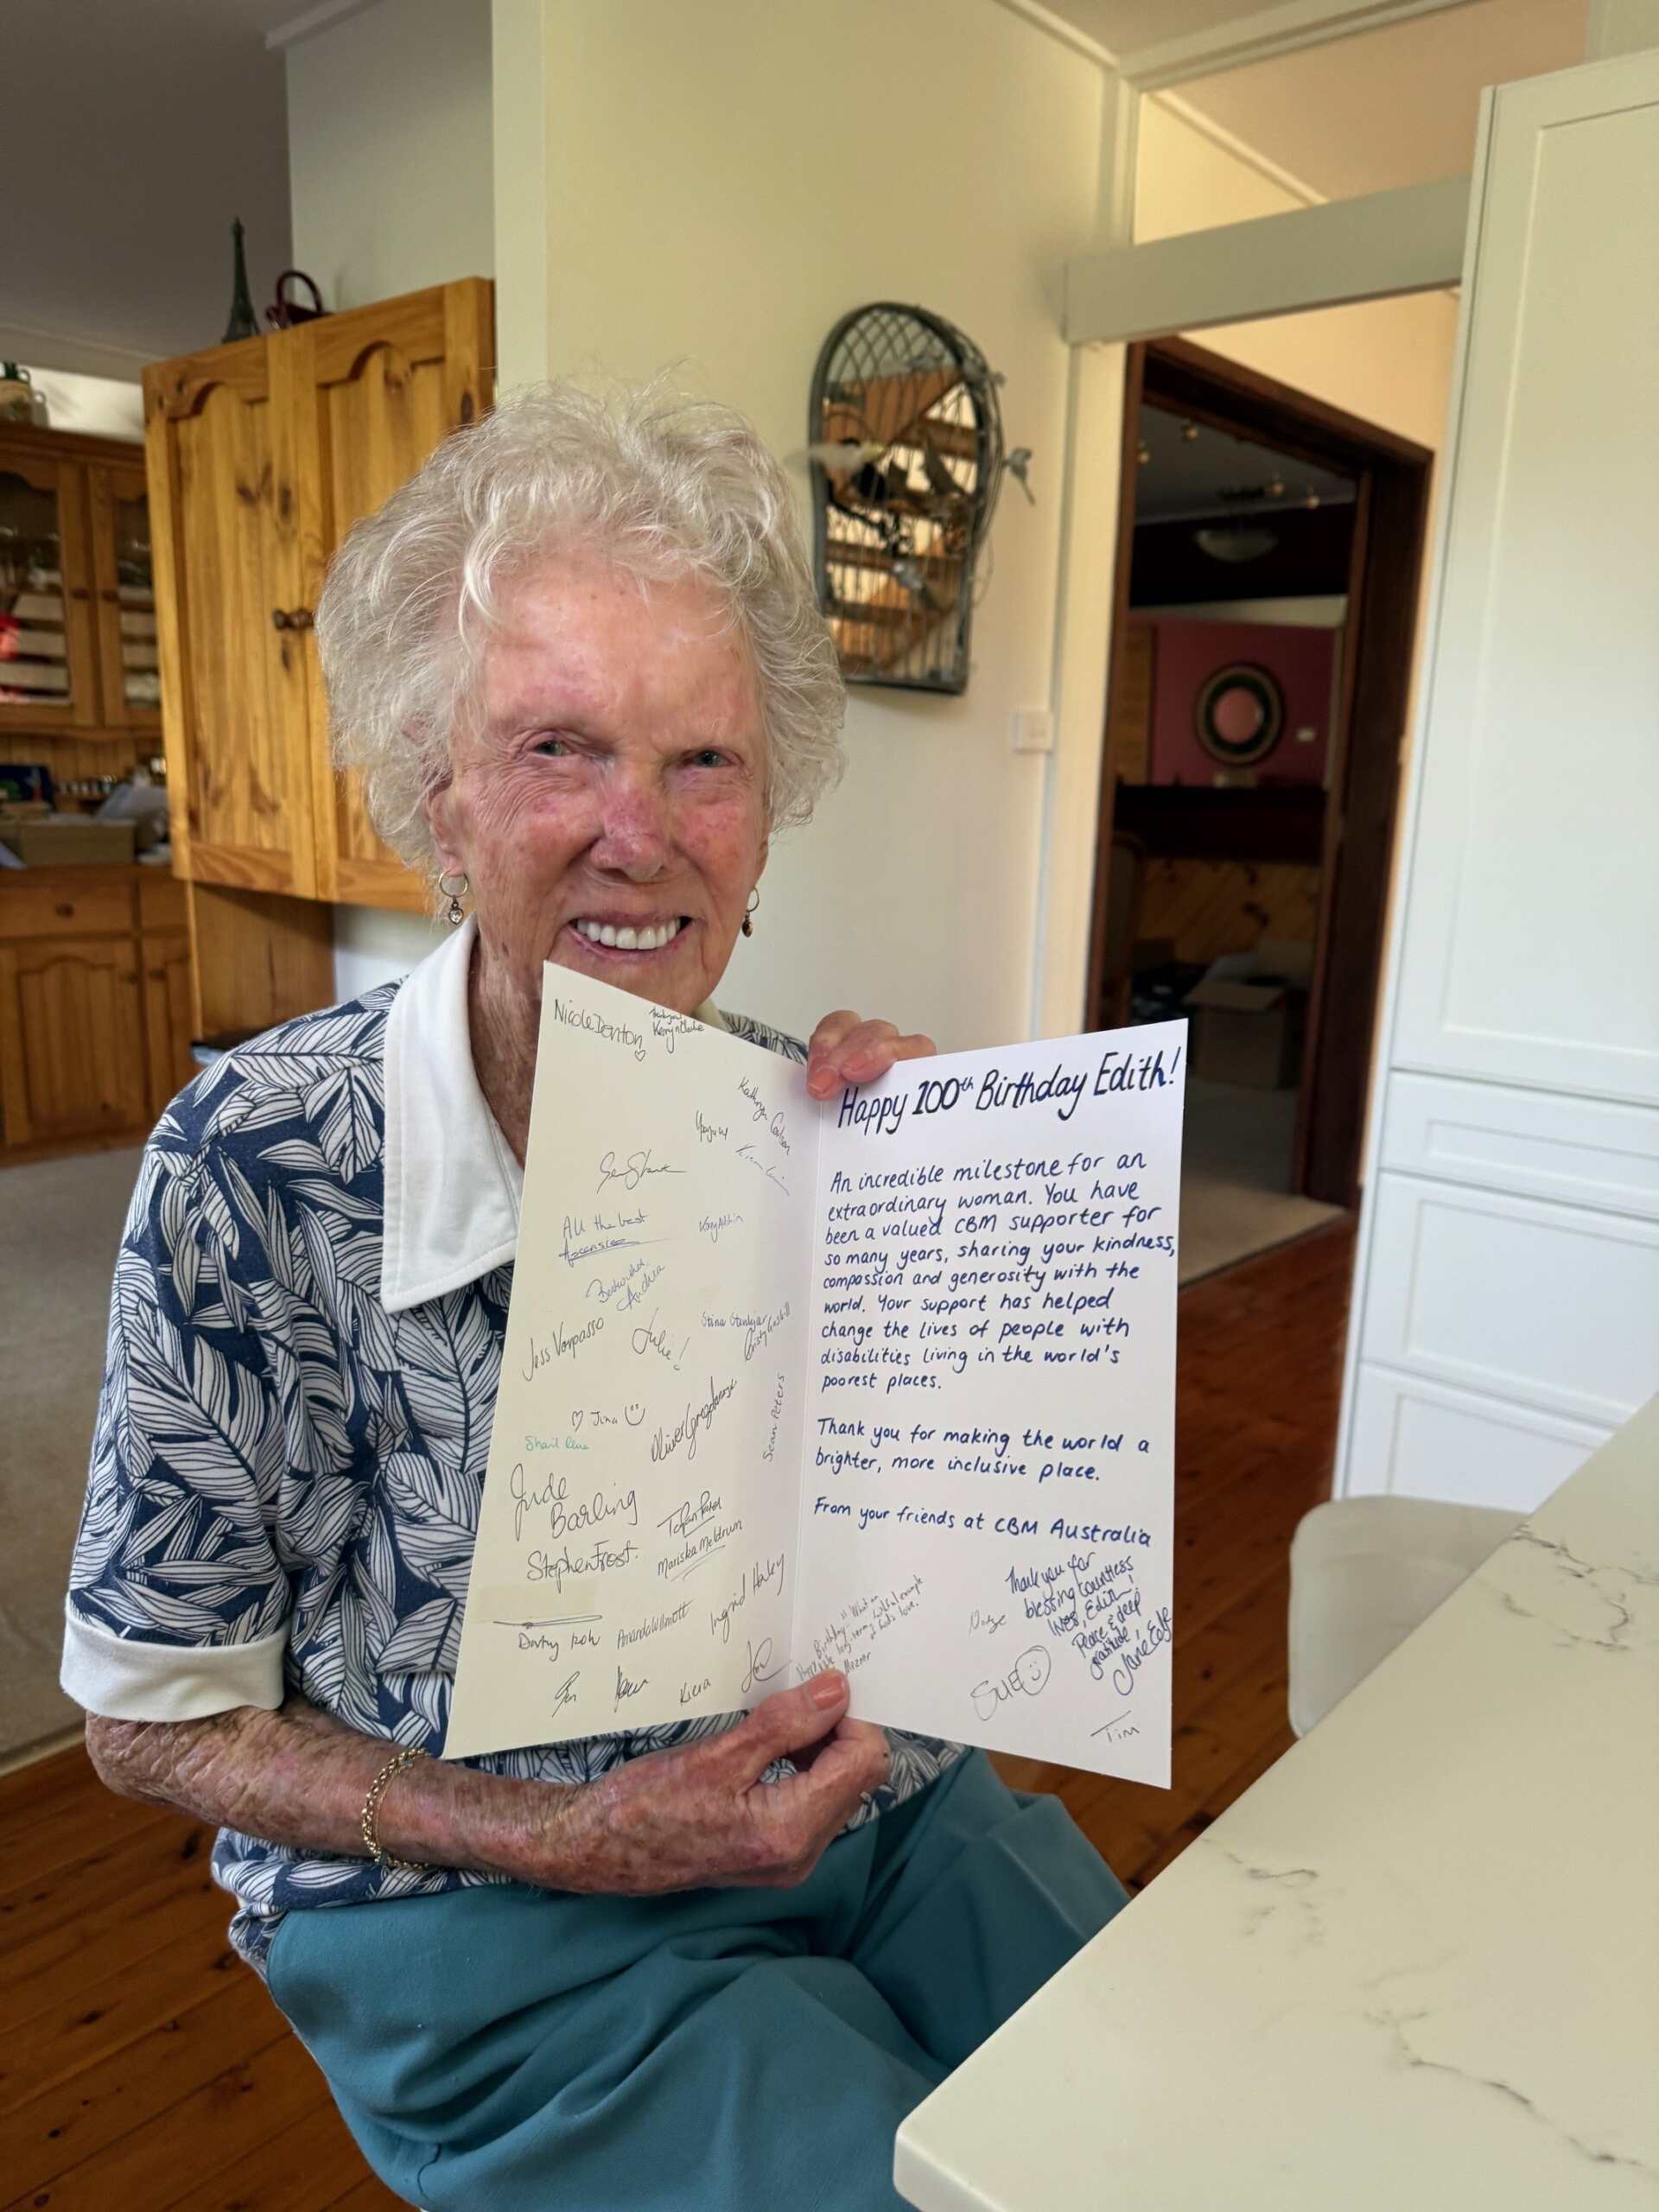 Nicole Denton
Thank you
All the best
Andrea
Jess Vorpasso
Julie!
Sean Peters
Jina
Jude
Barling
Stephen Frost.
Mariska Meldrum
Ingrid Haley
Amanda Wilmott
Kiera
Happy 100th Birthday Edith!
An incredible milestone for an
extraordinary woman. You have
been a valued CBM supporter for
so many years, sharing your kindness,
compassion and generosity with the
world. Your support has helped
change the lives of people with
disabilities living in the world's
poorest places.
Thank you for making the world a
brighter, more inclusive place.
From your friends at CBM Australia
Thank you for
blessing countless
lives, Edith!
Peace & deep
gratitude,
Jane Edge
Happy Birthday
SUE
Tim